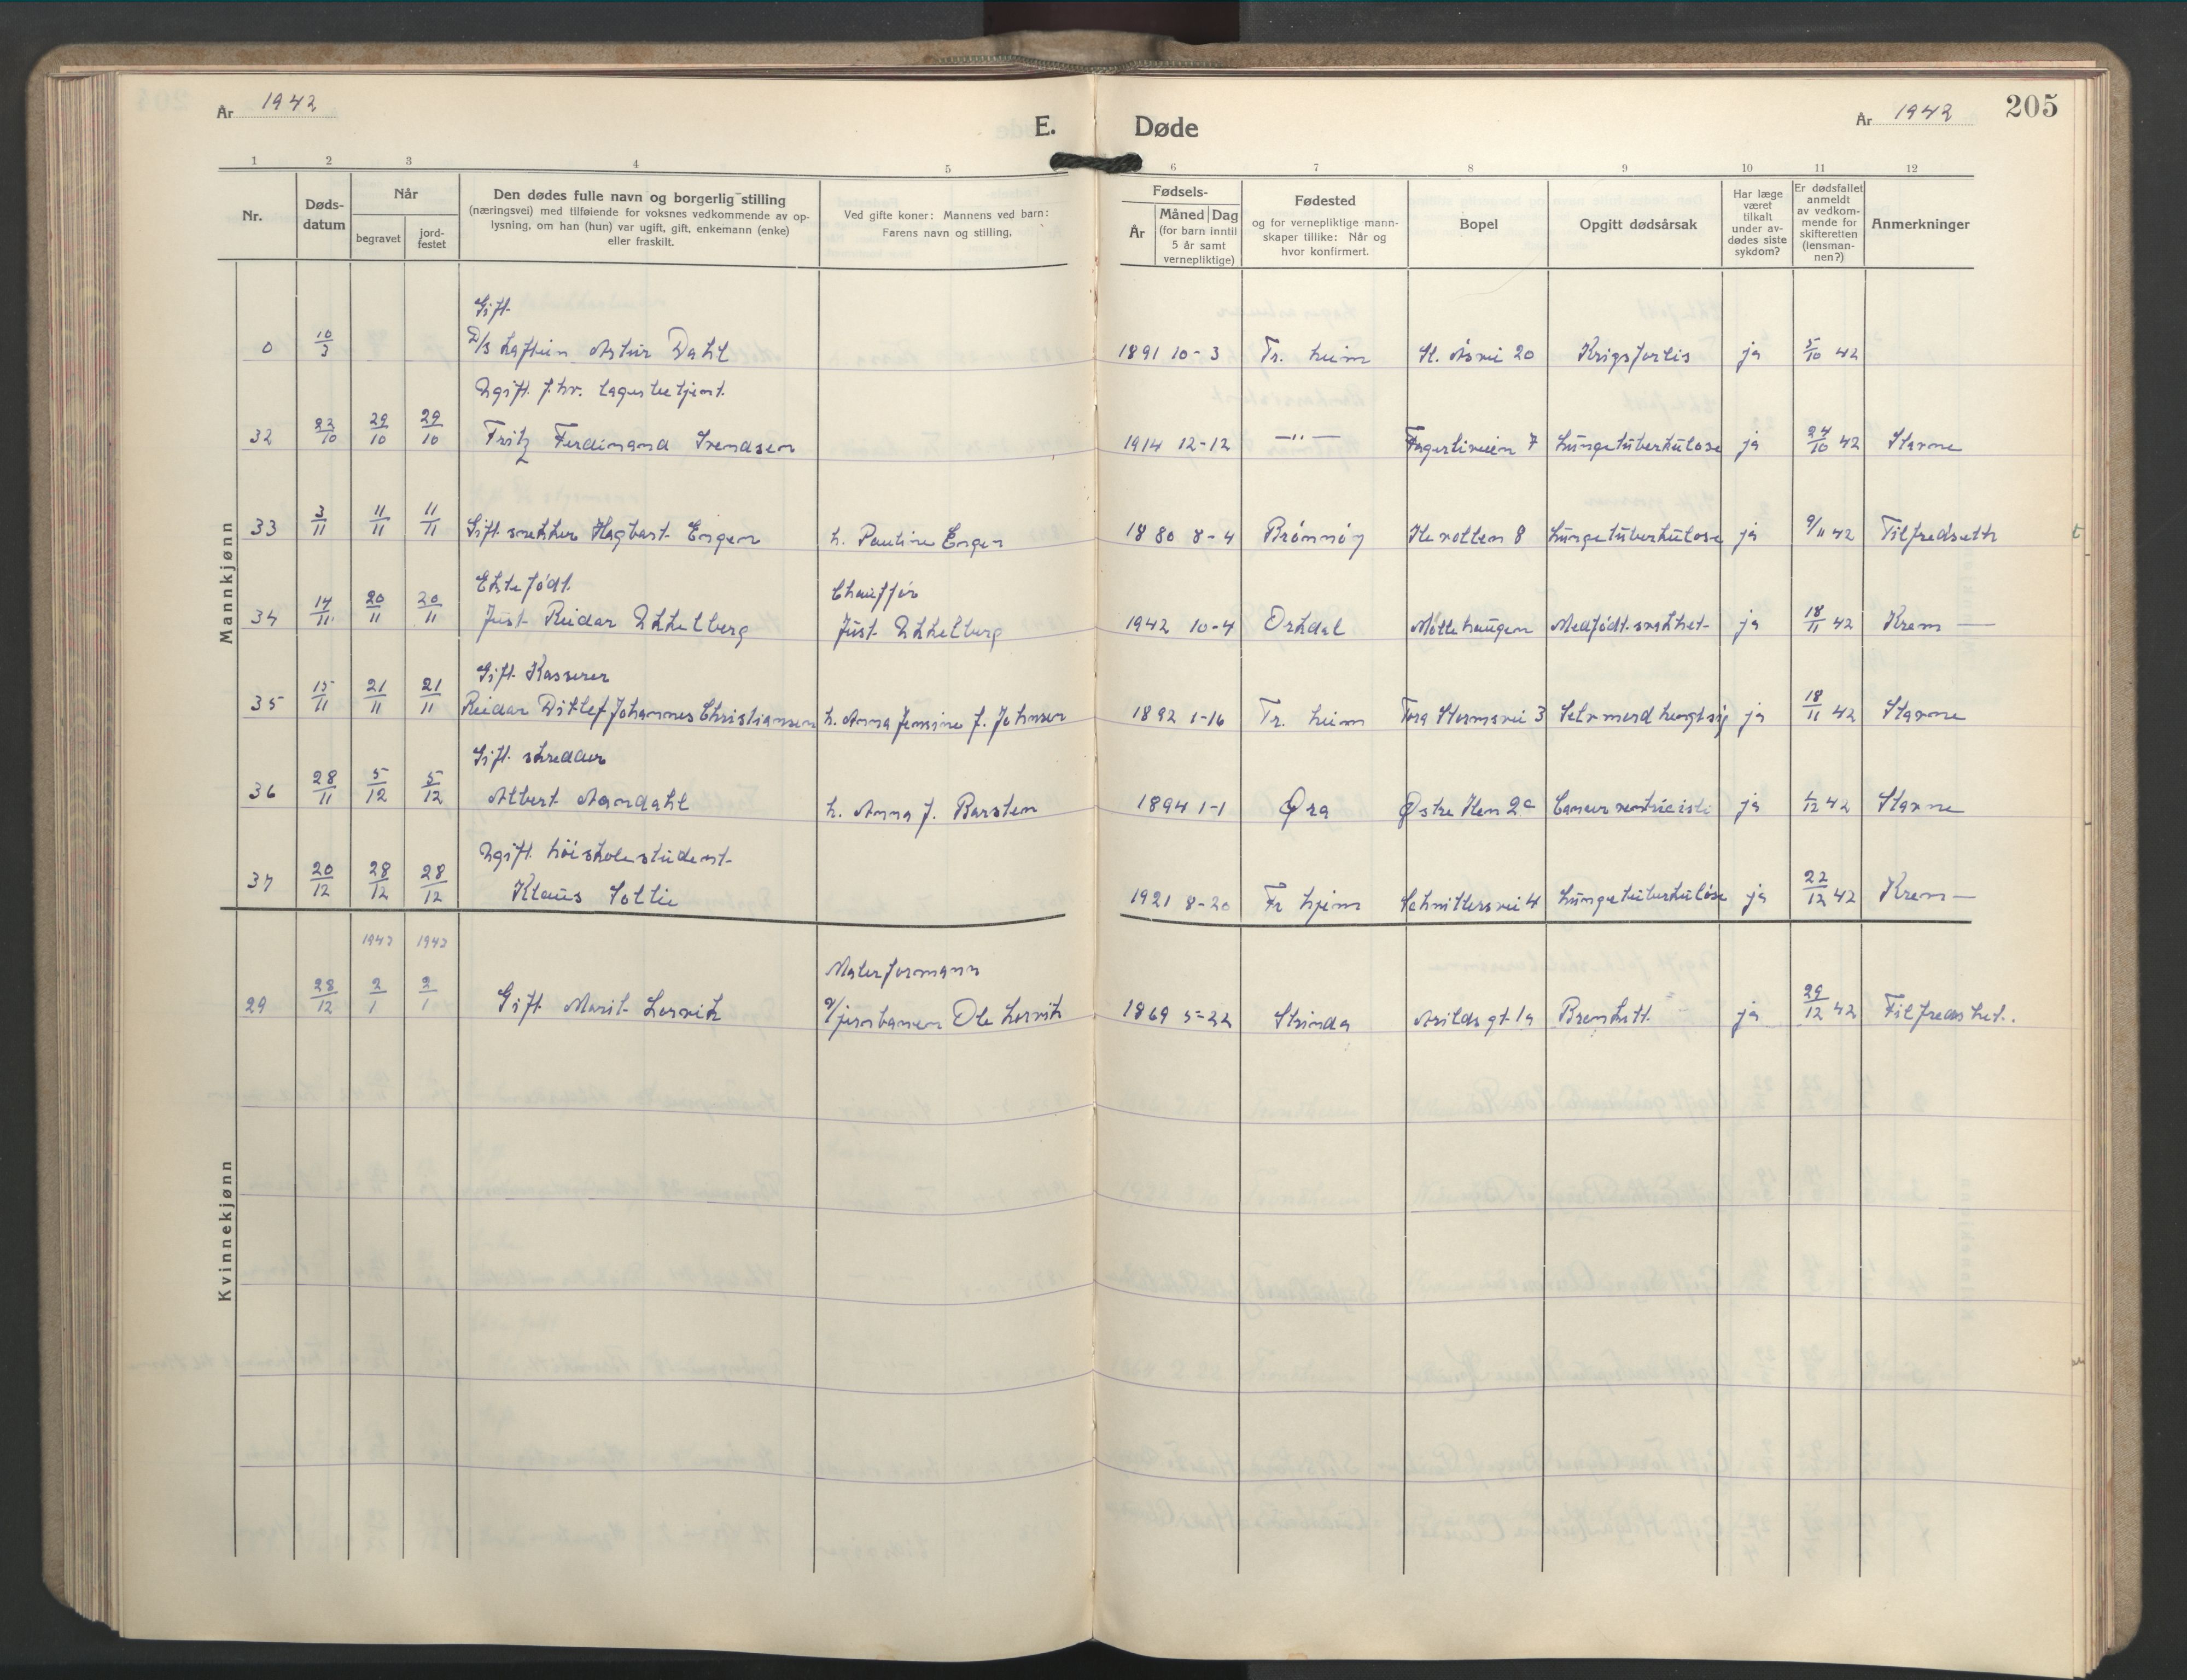 År 1942
E.
Døde
År 1942
205
1 2 3 4 5 6 7 8 9 10 11 12
Nr.
Døds-
datum
Når
begravet
jord-
festet
Den dødes fulle navn og borgerlig stilling
(næringsvei) med tilføiende for voksnes vedkommende av op-
lysning, om han (hun) var ugift, gift, enkemann (enke)
eller fraskilt.
Ved gifte koner: Mannens ved barn:
Farens navn og stilling.
Fødsels-
År
Måned Dag
(for barn inntil
5 år samt
vernepliktige)
Fødested
og for vernepliktige mann-
skaper tillike: Når og
hvor konfirmert.
Bopel
Opgitt dødsårsak
Har læge
været
tilkalt
under av-
dødes siste
sykdom?
Er dødsfallet
anmeldt
av vedkom-
mende for
skifteretten
(lensman-
nen?)
Anmerkninger
Mannkjønn
Gift
0 10/3 Artur Dahl 1891 10-3 Tr. heim St. Åsvei 20 Krigsforlis ja 5/10 42
Ugift f.hv.
32 22/10 29/10 29/10 Fritz Ferdinand Svendsen 1914 12-12 —"— Fagerliveien 7 Lungetuberkulose ja 24/10 42 Stavne
33 3/11 11/11 11/11 Gift snekker Hagbart Engen h. Pauline Engen 1880 8-4 Brønnøy Ilevollen 8 Lungetuberkulose ja 9/11 42 Tilfredseth
Ektefødt Chauffør
34 14/11 20/11 20/11 Just Reidar Ukkelberg Just Ukkelberg 1942 10-4 Orkdal Møllehaugen Medfødt svakhet ja 18/11 42 Krem —
Gift Kasserer
35 15/11 21/11 21/11 Reidar Ditlef Johannes Christiansen h. Anna Jensine f. Johnsen 1892 1-16 Tr. heim Tora Stormsvei 3 Selvmord hengt sig ja 18/11 42 Stavne
Gift skredder
36 28/11 5/12 5/12 Albert Aandahl h. Anna f. Barsten 1894 1-1 Øra Østre Ilen 2a Cancer ventriculi ja 1/12 42 Stavne
Ugift høiskolestudent
37 20/12 28/12 28/12 Klaus Sollie 1921 8-20 Tr hjem Schmittersvei 4 Lungetuberkulose ja 22/12 42 Krem —
Kvinnekjønn
1943 1943
Malerformann
29 28/12 2/1 2/1 Gift Marit Lervik v/jernbanen Ole Lervik 1869 5-22 Strinda Arildsgt. 1a ja 29/12 42 Tilfredshet.